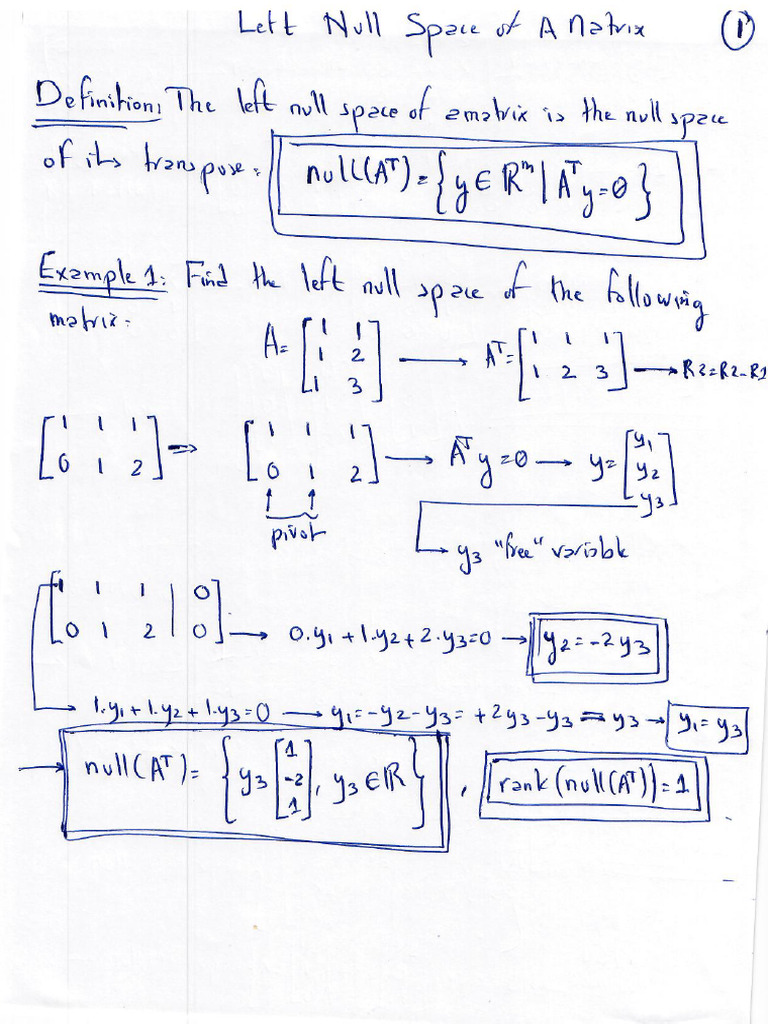 Left Null Space of A Matrix ①
Definition: The left null space of a matrix is the null space
of its transpose: null(Aᵀ) = {y ∈ ℝᵐ | Aᵀy = 0}
Example 1: Find the left null space of the following
matrix:
A = [1 1; 1 2; 1 3] → Aᵀ = [1 1 1; 1 2 3] → R2 = R2 - R1
[1 1 1; 0 1 2] → [1 1 1; 0 1 2] → Aᵀy = 0 → y = [y₁; y₂; y₃]
pivot
y₃ "free" variable
[1 1 1 | 0; 0 1 2 | 0] → 0·y₁ + 1·y₂ + 2·y₃ = 0 → y₂ = -2y₃
1·y₁ + 1·y₂ + 1·y₃ = 0 → y₁ = -y₂ - y₃ = +2y₃ - y₃ = y₃ → y₁ = y₃
→ null(Aᵀ) = {y₃ [1; -2; 1], y₃ ∈ ℝ}, rank(null(Aᵀ)) = 1